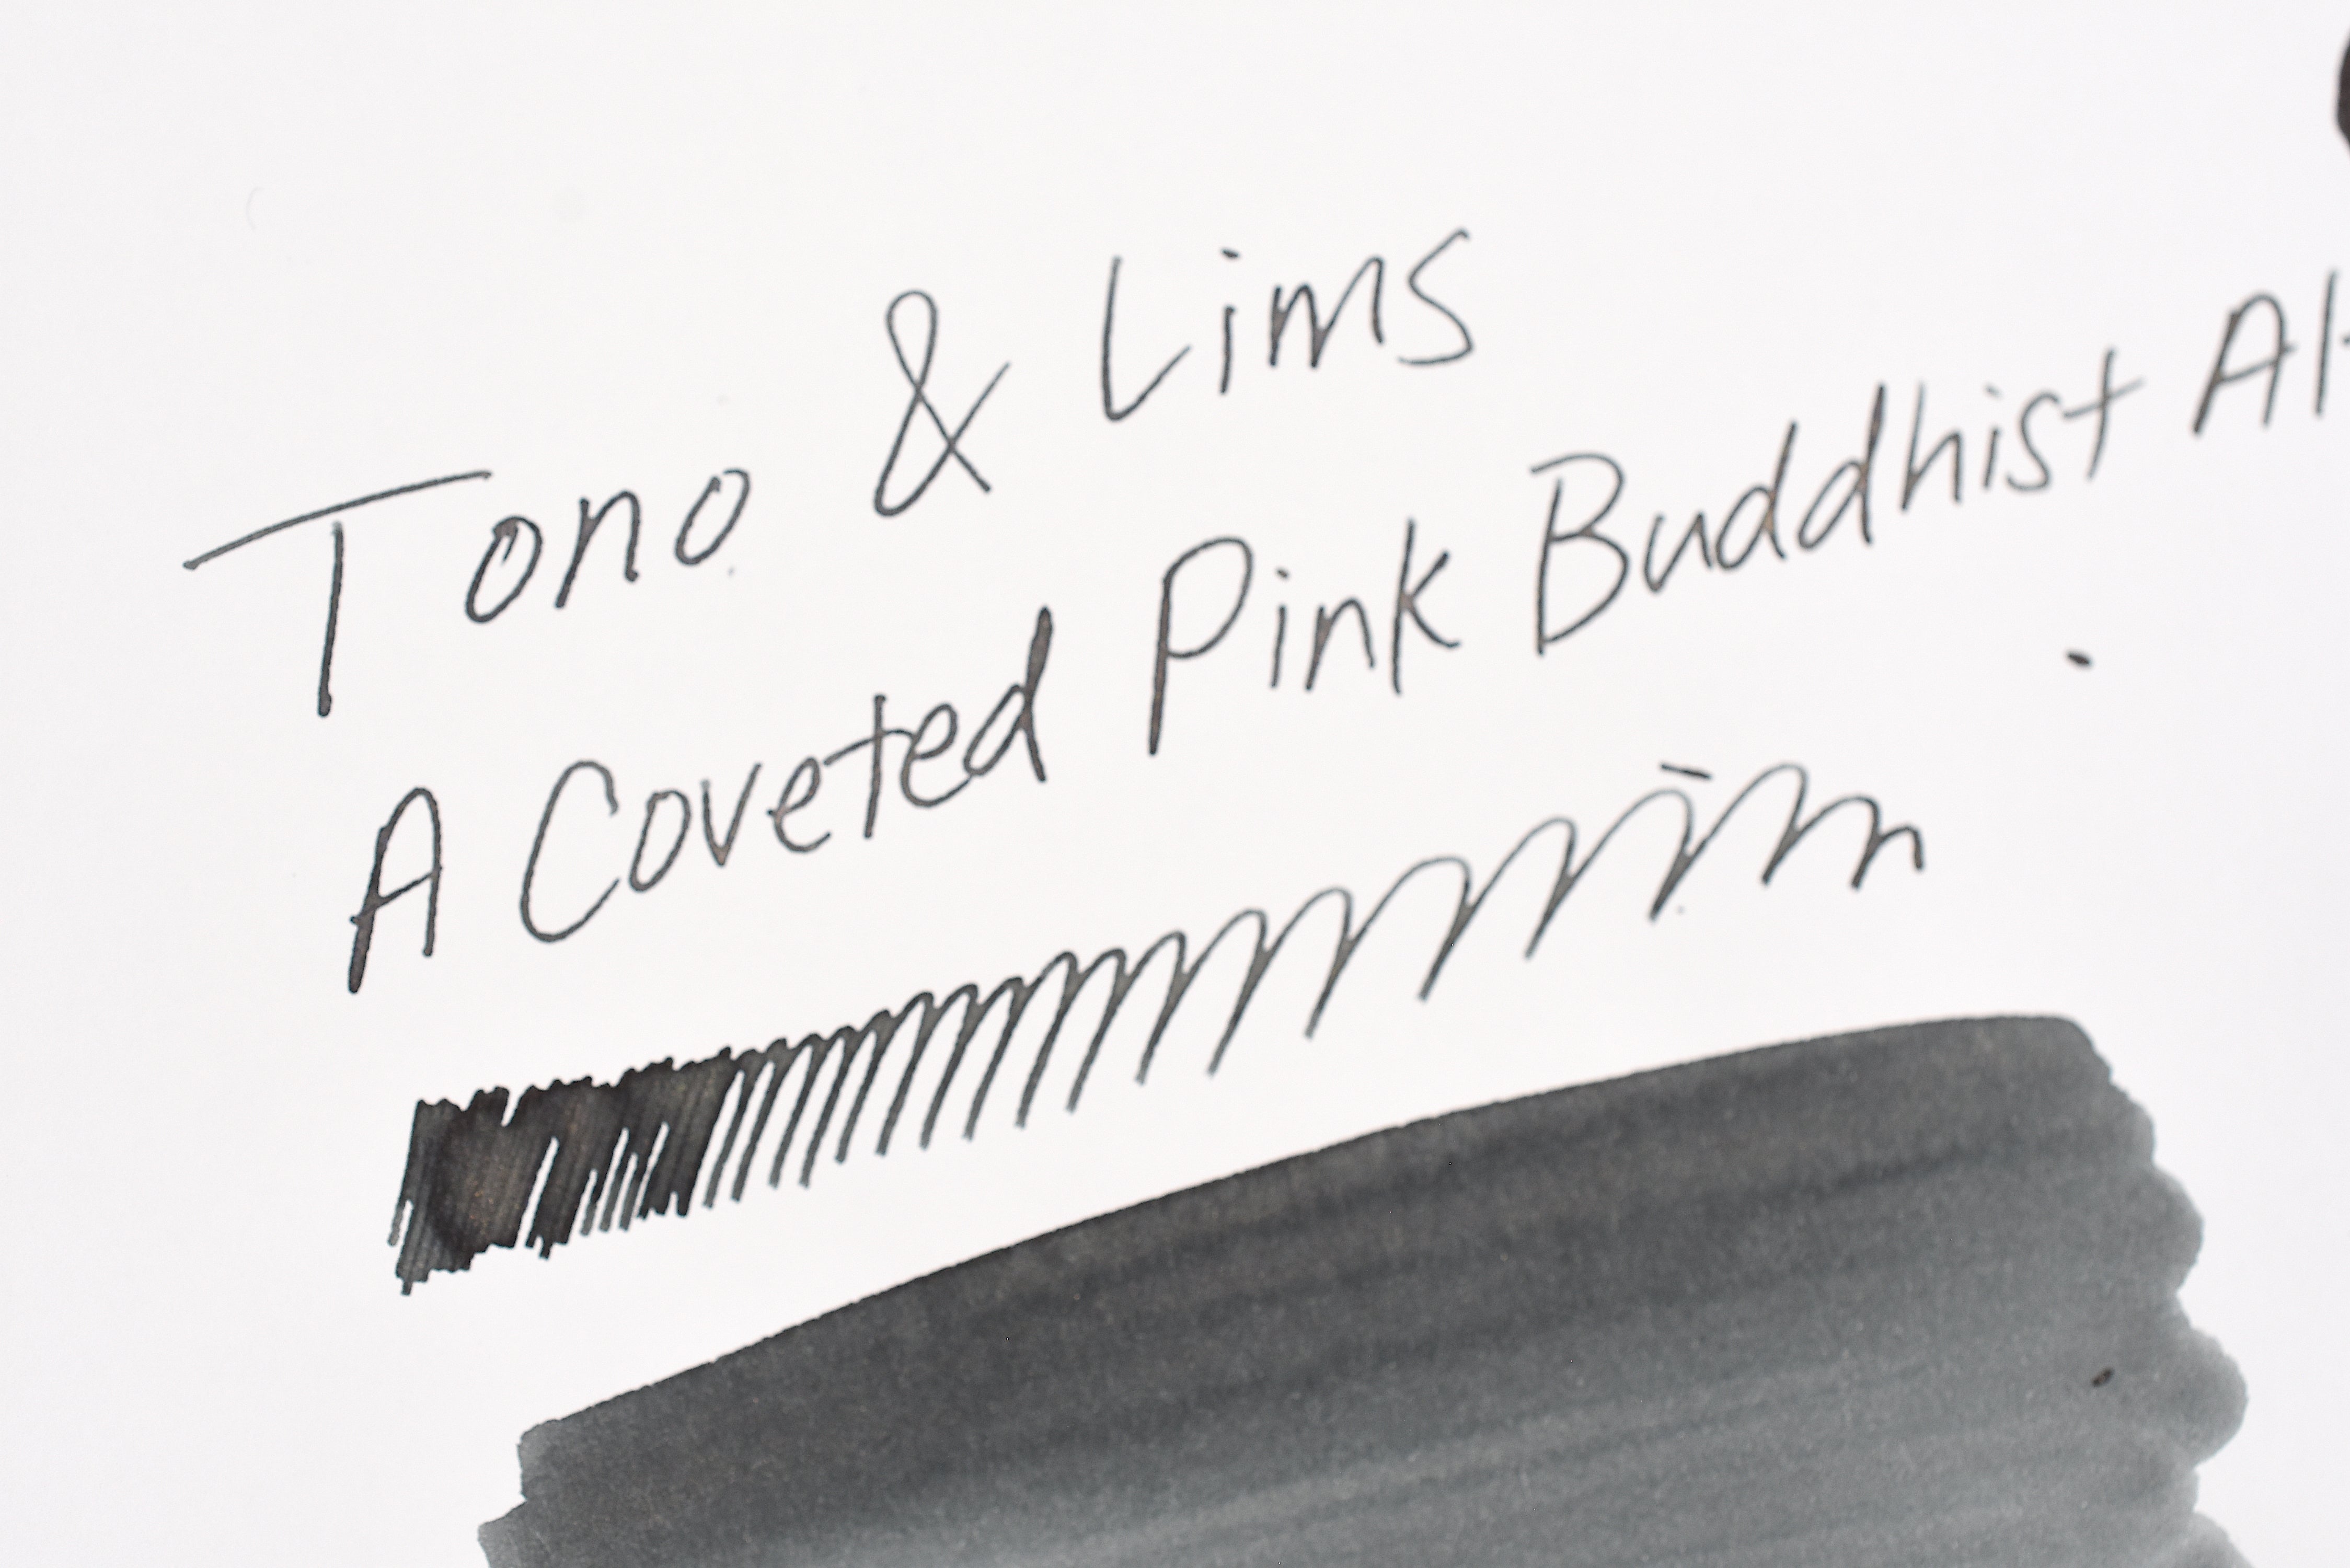 Tono & Lims
A Coveted Pink Buddhist